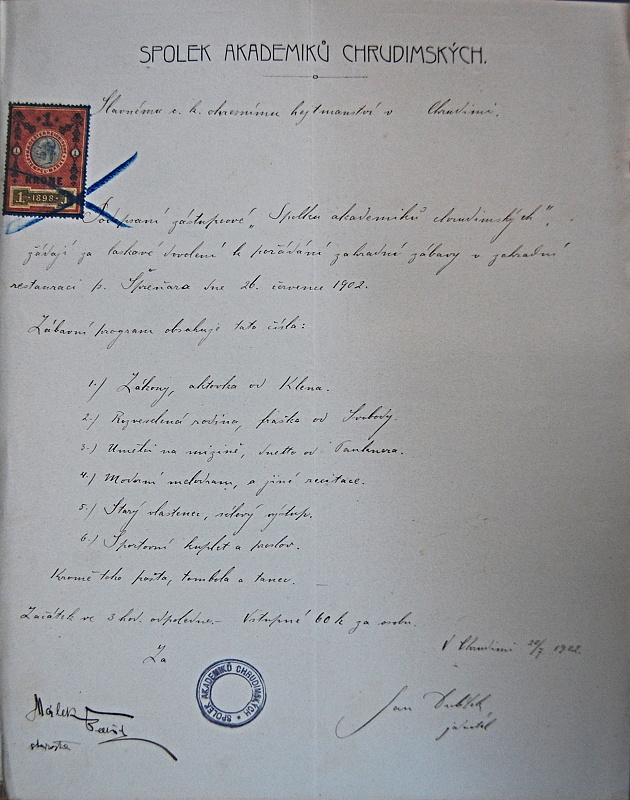 SPOLEK AKADEMIKŮ CHRUDIMSKÝCH.
Slavnému c. k. okresnímu hejtmanství v Chrudimi.
1
KRONE
1 1898
Podepsaní zástupcové „Spolku akademiků chrudimských"
žádají za laskavé dovolení k pořádání zahradní zábavy v zahradní
restauraci p. dne 26. července 1902.
Zábavní program obsahuje tato čísla:
1.) Zákony, aktovka od Klena.
2.) Rozveselená rodina, fraška od Svobody.
3.) Umělci na mizině, duetto od
4.) Moderní melodram, a jiné recitace.
5.) Starý vlastenec, sólový výstup.
6.) Sportovní kuplet a proslov.
Kromě toho pošta, tombola a tanec.
Začátek ve 3 hod. odpoledne.– Vstupné 60 h za osobu.
V Chrudimi 22/7 1902.
Za
SPOLEK AKADEMIKŮ CHRUDIMSKÝCH
Jan
jednatel
starosta